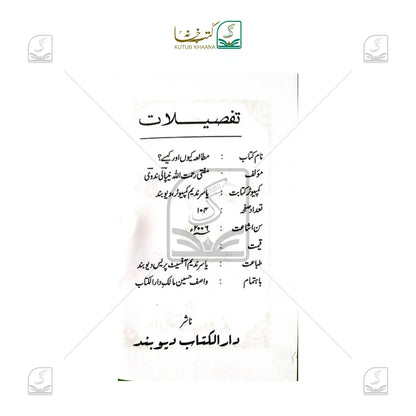 کتب خانہ
KUTUB KHAANA
تفصیلات
نام کتاب : مطالعہ کیوں اور کیسے؟
مؤلف : مفتی رحمت اللہ نیپالی ندوی
کمپیوٹر کتابت : یاسر ندیم کمپیوٹر دیوبند
تعداد صفحہ : ۱۰۴
سن اشاعت : ۲۰۰۶ء
قیمت :
طباعت : یاسر ندیم آفسیٹ پریس دیوبند
باہتمام : واصف حسین مالک دارالکتاب
ناشر
دارالکتاب دیوبند